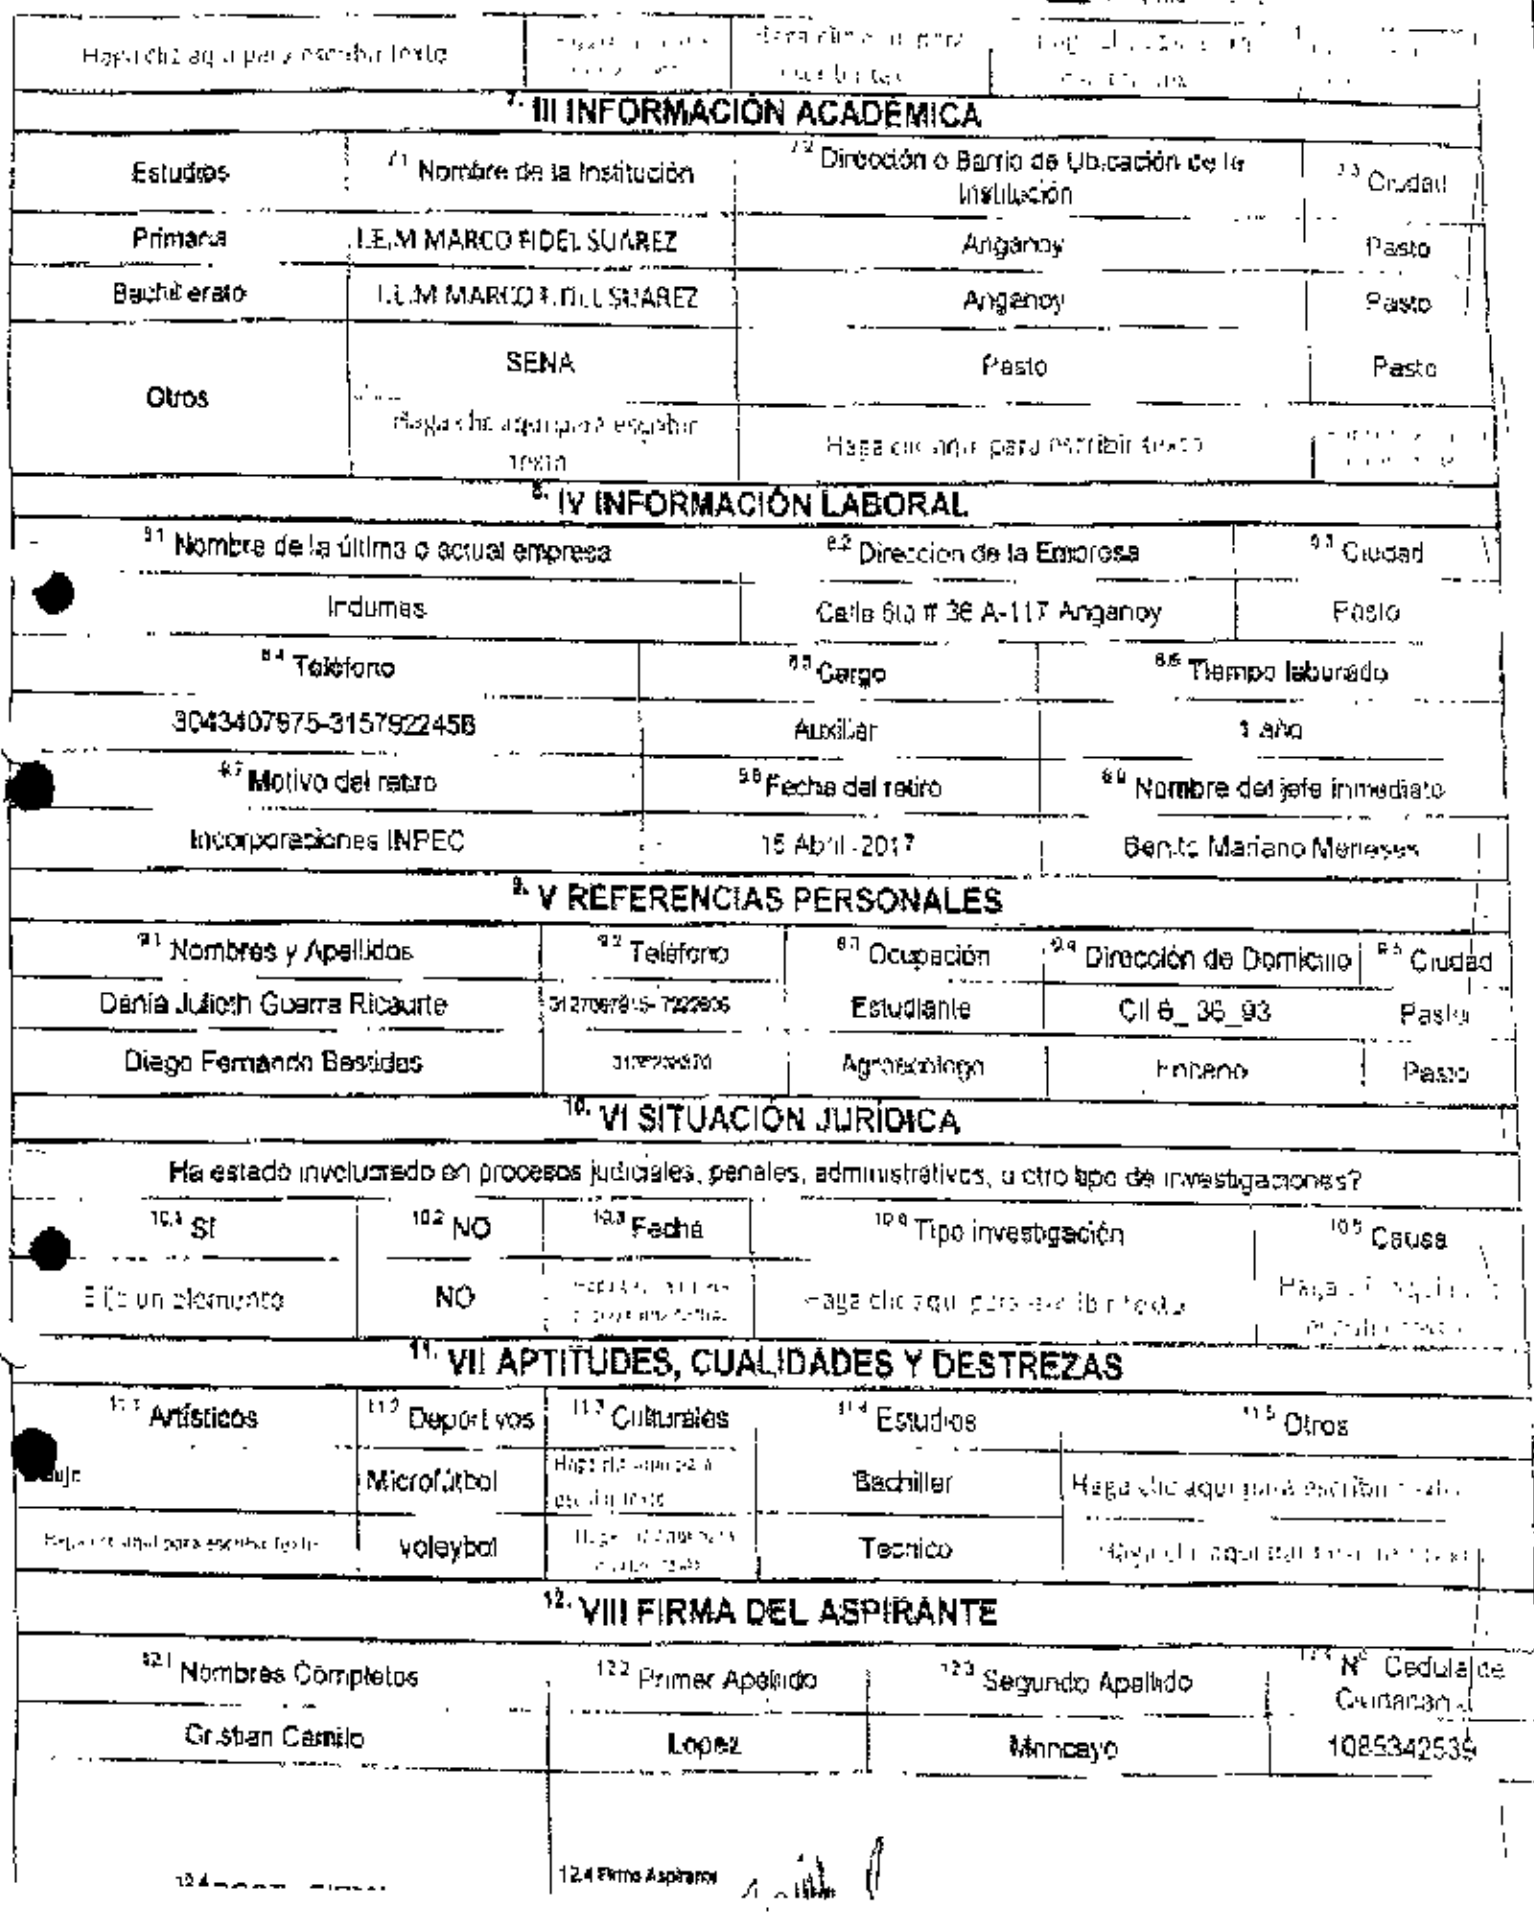 Haga clic aquí para escribir texto
7. III INFORMACIÓN ACADÉMICA
Estudios 7.1 Nombre de la Institución 7.2 Dirección o Barrio de Ubicación de la Institución 7.3 Ciudad
Primaria I.E.M MARCO FIDEL SUAREZ Anganoy Pasto
Bachillerato I.E.M MARCO FIDEL SUAREZ Anganoy Pasto
Otros SENA Pasto Pasto
Haga clic aquí para escribir texto Haga clic aquí para escribir texto
8. IV INFORMACIÓN LABORAL
8.1 Nombre de la última o actual empresa 8.2 Direccion de la Empresa 8.3 Ciudad
Indumas Calle 6ta # 36 A-117 Anganoy Pasto
8.4 Teléfono 8.5 Cargo 8.6 Tiempo laburado
3043407975-3157922456 Auxiliar 1 año
8.7 Motivo del retiro 8.8 Fecha del retiro 8.9 Nombre del jefe inmediato
Incorporaciones INPEC 15 Abril -2017 Benito Mariano Meneses
9. V REFERENCIAS PERSONALES
9.1 Nombres y Apellidos 9.2 Teléfono 9.3 Ocupación 9.4 Dirección de Domicilio 9.5 Ciudad
Dania Julieth Guerra Ricaurte Estudiante Cll 6_ 36_93 Pasto
Diego Fernando Bastidas Agroecologo Pasto
10. VI SITUACIÓN JURÍDICA
Ha estado involucrado en procesos judiciales, penales, administrativos, u otro tipo de investigaciones?
10.1 SI 10.2 NO 10.3 Fecha 10.4 Tipo investigación 10.5 Causa
Elija un elemento NO Haga clic aquí para escribir texto
11. VII APTITUDES, CUALIDADES Y DESTREZAS
11.1 Artísticos 11.2 Deportivos 11.3 Culturales 11.4 Estudios 11.5 Otros
Microfútbol Haga clic aquí para escribir texto Bachiller Haga clic aquí para escribir texto
Haga clic aquí para escribir texto voleybol Tecnico Haga clic aquí para escribir texto
12. VIII FIRMA DEL ASPIRANTE
12.1 Nombres Completos 12.2 Primer Apellido 12.3 Segundo Apellido Nº Cedula de Ciudadanía
Cristian Camilo Lopez Moncayo 1085342539
12.4 Firma Aspirante